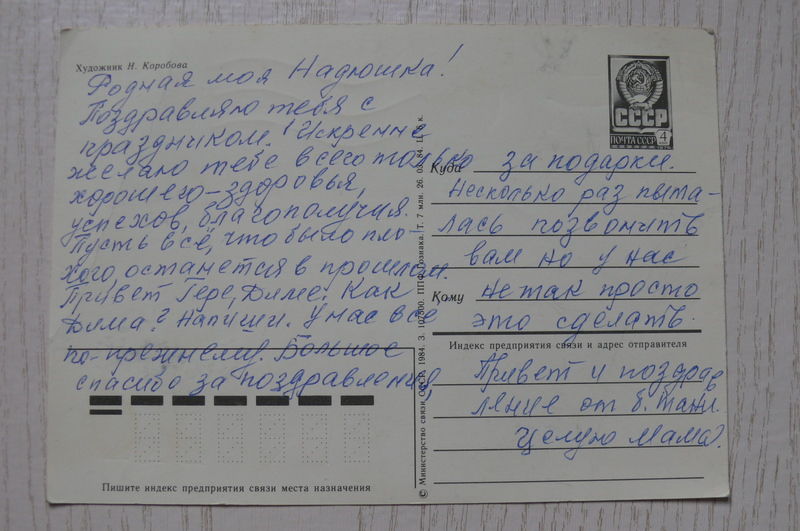 Художник Н. Коробова
Родная моя Надюшка!
Поздравляю тебя с
праздником. Искренне
желаю тебе всего только
хорошего-здоровья,
успехов, благополучия.
Пусть всё, что было пло
хого останется в прошлом.
Привет Гере, Диме. Как
Дима? Напиши. У нас все
по-прежнему. Большое
спасибо за поздравление,
Пишите индекс предприятия связи места назначения
© Министерство связи СССР. 1984. З. 107500. ППФ Гознака. Т. 7 млн. 26. 03. 84. Ц. 5 к.
СССР
ПОЧТА СССР 4
Куда за подарки.
Несколько раз пыта-
лась позвонить
вам но у нас
Кому не так просто
это сделать.
Индекс предприятия связи и адрес отправителя
Привет и поздрав
ление от б. Тани.
Целую Мама.